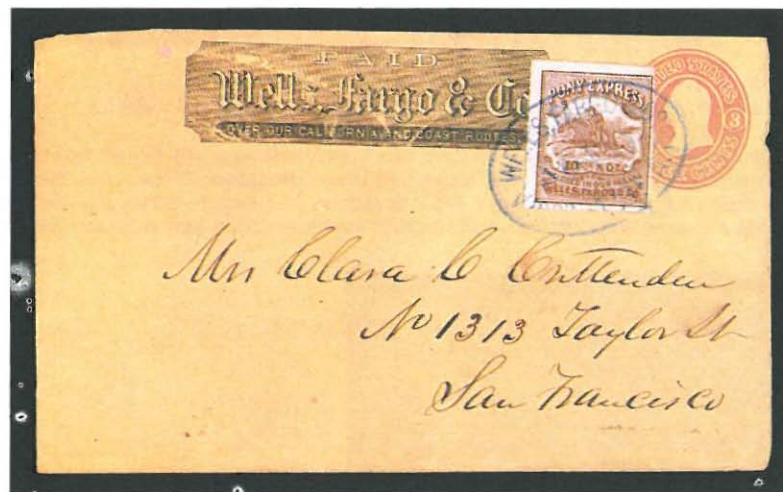 PAID
Wells, Fargo & Co
OVER OUR CALIFORNIA AND COAST ROUTES.
PONY EXPRESS
WELLS FARGO & CO
UNITED STATES
3
Mrs Clara C Crittenden
No 1313 Taylor St
San Francisco